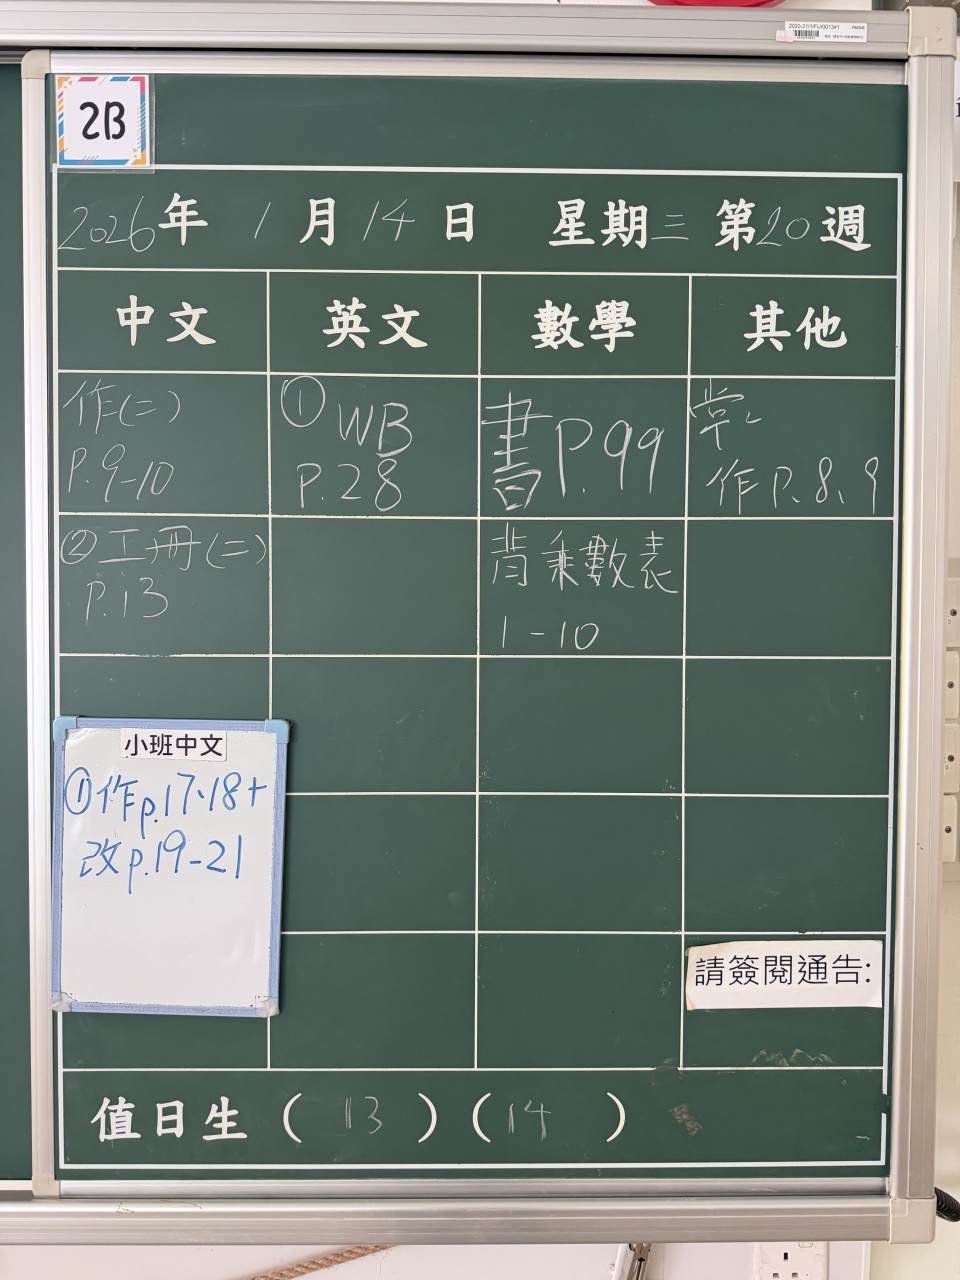 2020-21/1/FU/001341
2B
2026年 1月14日 星期三 第20週
中文 英文 數學 其他
作(二)
P.9-10
① WB
P.28
書P.99
常
作P.8、9
②工冊(二)
P.13
背乘數表
1-10
小班中文
①作p.17、18+
改p.19-21
請簽閱通告:
值日生 ( 13 ) ( 14 )